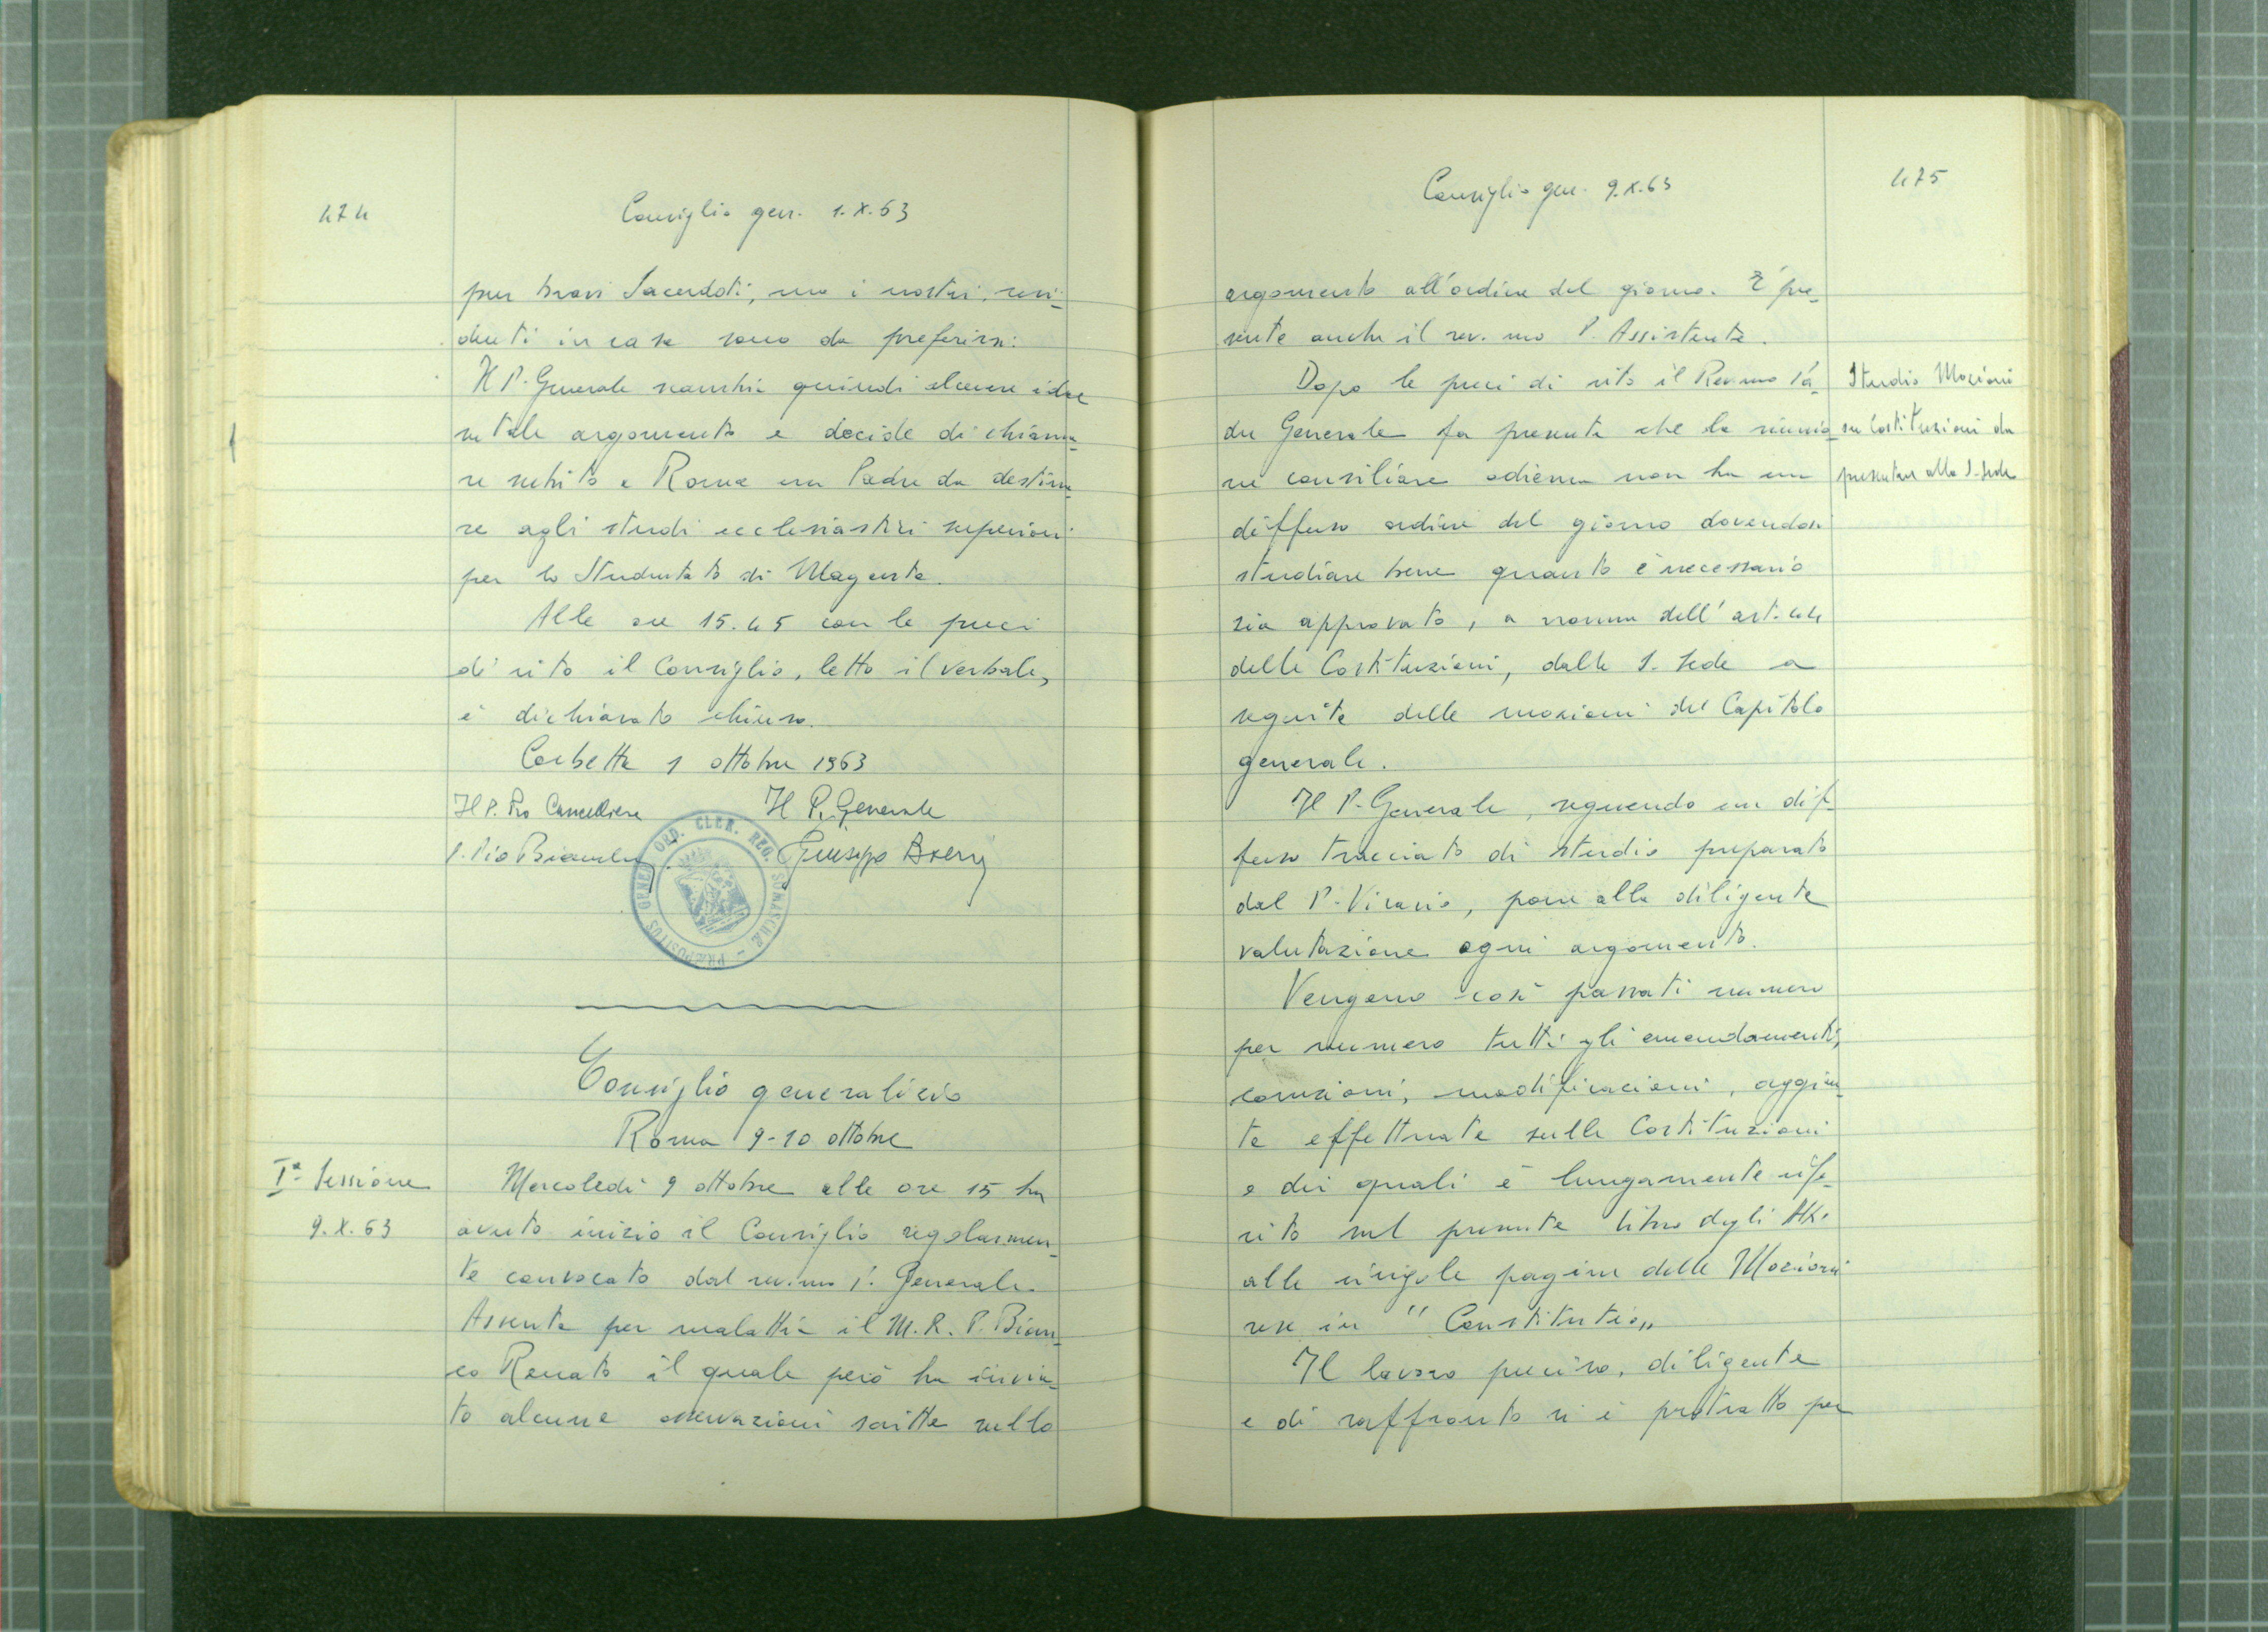 474
Consiglio gen. 1.X.63
pur bravi Sacerdoti, ma i nostri, resi-
denti in casa sono da preferirsi.
Il P. Generale scambia quindi alcune idee
su tale argomento e decide di chiama-
re subito a Roma un Padre da destina-
re agli studi ecclesiastici superiori
per lo Studentato di Magenta.
Alle ore 15.45 con le preci
di rito il Consiglio, letto il verbale,
è dichiarato chiuso.
Corbetta 1 ottobre 1963
Il P. Pro Cancelliere Il P. Generale
P. Pio Bianchi Giuseppe Boeris
PRÆPOSITUS GENER. ORD. CLER. REG. SOMASCHÆ
Consiglio generalizio
Roma 9-10 ottobre
Iª Sessione
9.X.63
Mercoledì 9 ottobre alle ore 15 ha
avuto inizio il Consiglio regolarmen-
te convocato dal rev.mo P. Generale.
Assente per malattia il M.R.P. Bian-
co Renato il quale però ha invia-
to alcune osservazioni scritte sullo
475
Consiglio gen. 9.X.63
argomento all'ordine del giorno. È pre-
sente anche il rev.mo P. Assistente.
Dopo le preci di rito il Rev.mo Pa-
dre Generale fa presente che la riunio-
ne consiliare odierna non ha un
diffuso ordine del giorno dovendosi
studiare bene quanto è necessario
sia approvato, a norma dell'art. 444
delle Costituzioni, dalla S. Sede a
seguito delle mozioni del Capitolo
generale.
Studio Mozioni
su Costituzioni da
presentare alla S. Sede
Il P. Generale, seguendo un dif-
fuso tracciato di studio preparato
dal P. Vicario, pone alla diligente
valutazione ogni argomento.
Vengono così passati numero
per numero tutti gli emendamenti,
correzioni, modificazioni, aggiun-
te effettuate sulle Costituzioni
e dei quali è lungamente rife-
rito nel presente libro degli Atti
alle singole pagine delle Mozioni
rese in "Constitutio"
Il lavoro preciso, diligente
e di raffronto si è protratto per